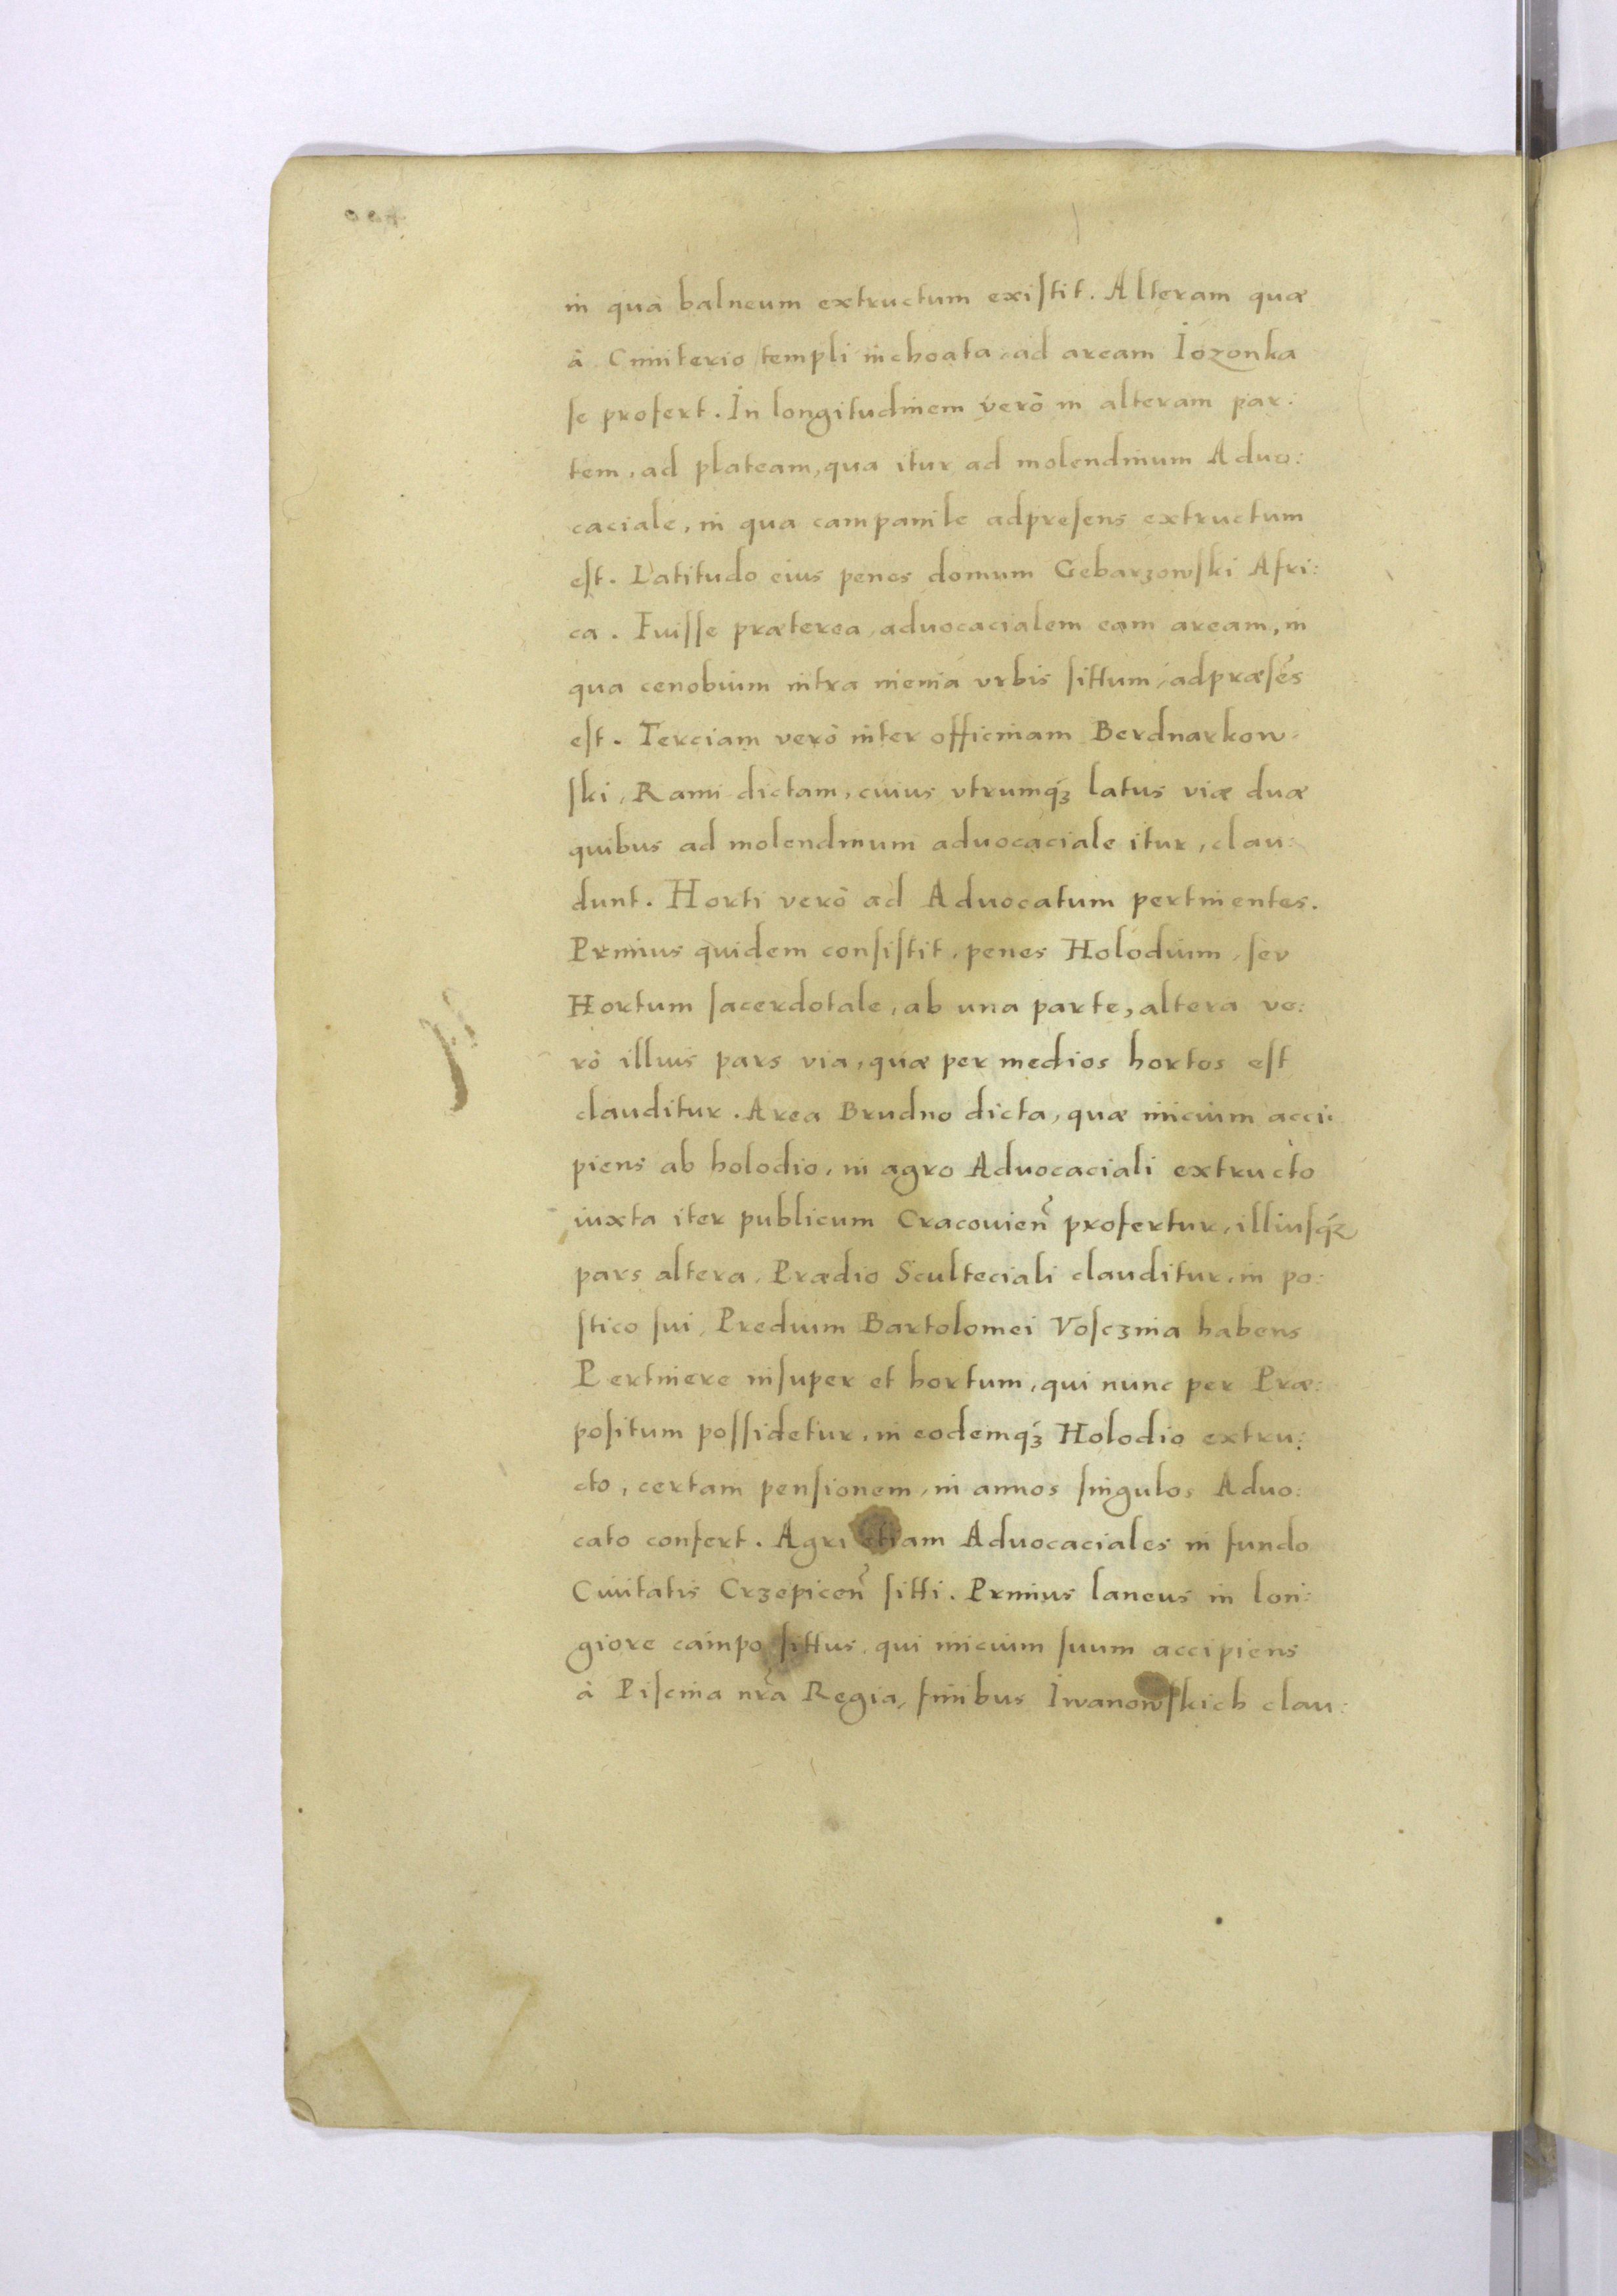 in qua balneum extructum existit. Alteram quæ
à Cimiterio templi inchoata, ad aream Iozonka
se profert. In longitudinem verò in alteram par:
tem, ad plateam, qua itur ad molendinum Aduo:
caciale, in qua campanile adpresens extructum
est. Latitudo eius penes domum Gebarzowski Afri:
ca. Fuisse præterea, aduocacialem eam aream, in
qua cenobium intra menia vrbis sittum, adpræsēs
est. Terciam verò inter officinam Berdnarkow:
ski, Rami dictam, cuius vtrumqꝫ latus viæ duæ
quibus ad molendinum aduocaciale itur, clau:
dunt. Horti verò ad Aduocatum pertinentes.
Primus quidem consistit, penes Holodium, seu
Hortum sacerdotale, ab una parte, altera ve:
rò illius pars via, quæ per medios hortos est
clauditur. Area Brudno dicta, quæ inicium acci:
piens ab holodio, in agro Aduocaciali extructo
iuxta iter publicum Cracouien̄ profertur, illiusqꝫ
pars altera, Prædio Sculteciali clauditur, in po:
stico sui, Predium Bartolomei Vosczina habens
Pertinere insuper et hortum, qui nunc per Præ:
positum possidetur, in eodemqꝫ Holodio extru:
cto, certam pensionem, in annos singulos Aduo:
cato confert. Agri etiam Aduocaciales in fundo
Ciuitatis Crzepicen̄ sitti. Primus laneus in lon:
giore campo sittus, qui inicium suum accipiens
à Piscina nr̄a Regia, finibus Iwanowskich clau: